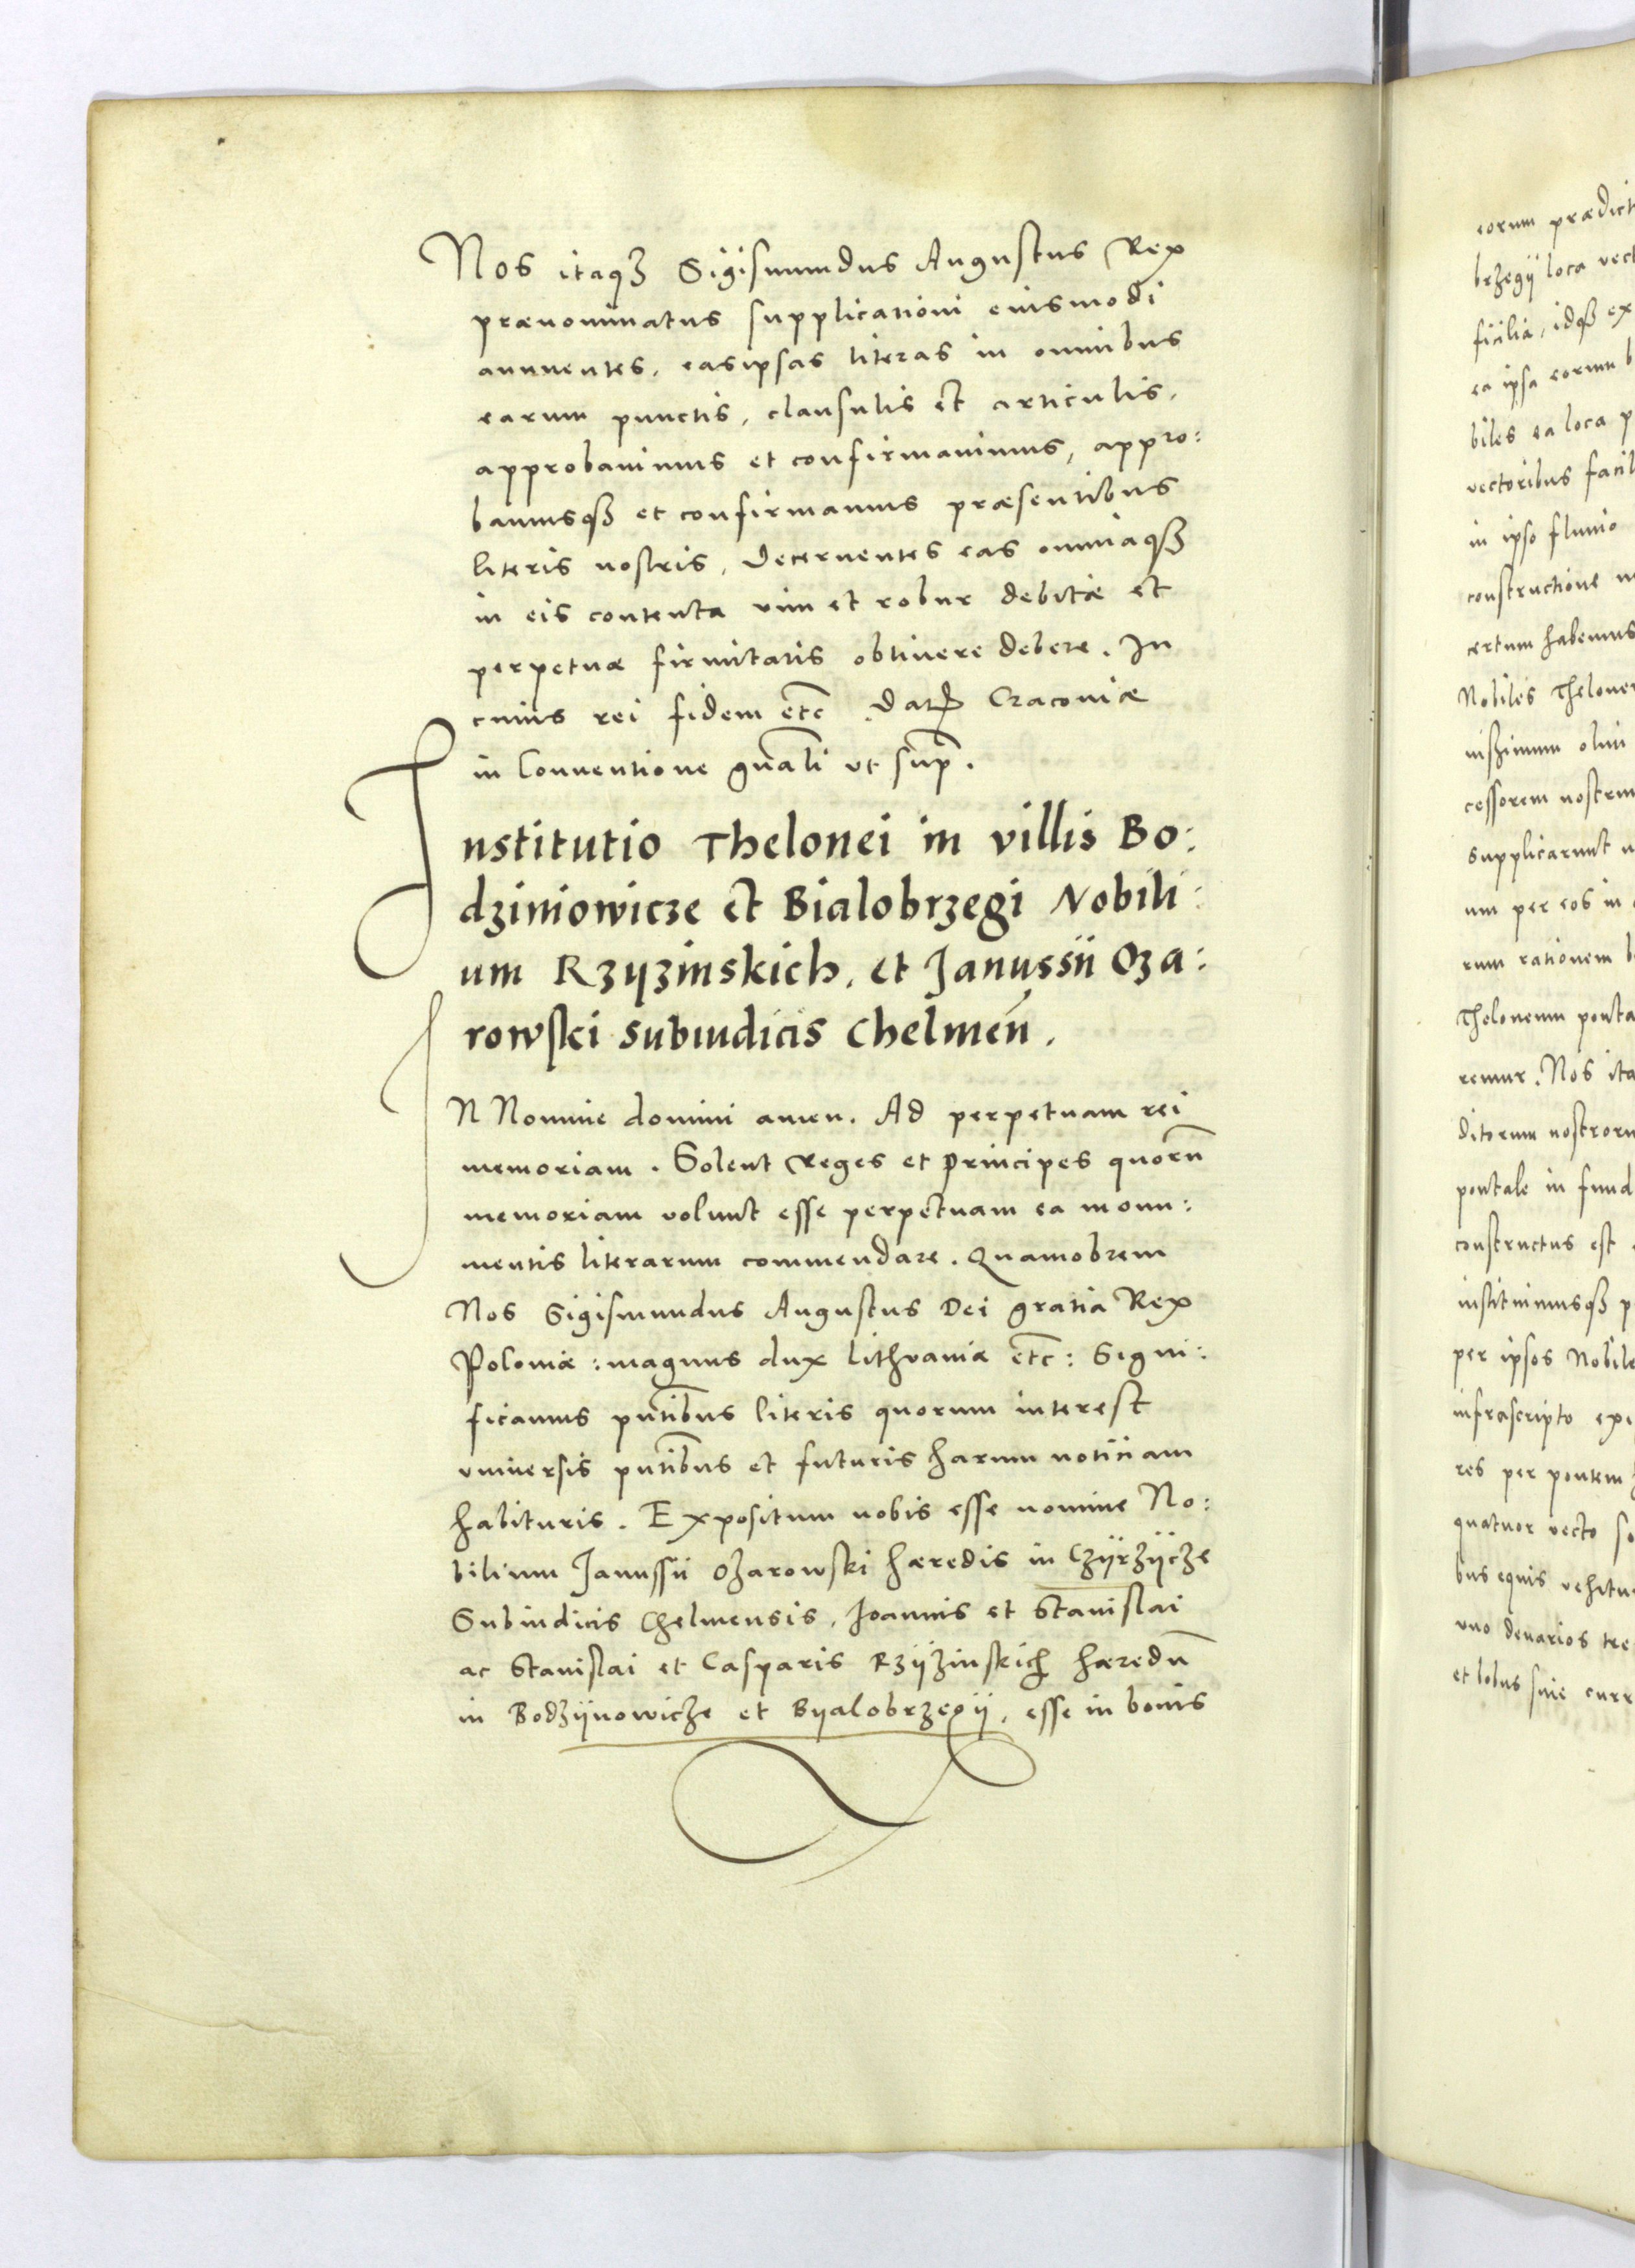 Nos itaqȝ Sigismundus Augustus Rex
prænominatus supplicationi eiusmodi
annuentes, easipsas literas in omnibus
earum punctis, clausulis et articulis,
approbavimus et confirmavimus, appro:
bamusqȝ et confirmamus præsentibus
literis nostris, decernentes eas omniaqȝ
in eis contenta vim et robur debitæ et
perpetuæ firmitatis obtinere debere. In
cuius rei fidem etc̄ Dat Cracoviæ
in Conventione gn̄ali ut sup̄.
Institutio Thelonei in villis Bo:
dziniowicze et Bialobrzegi Nobili:
um Rzyzinskich, et Janussii Oza:
rowski subiudicis Chelmen̄.
IN Nomine domini amen. Ad perpetuam rei
memoriam. Solent Reges et Principes quorū
memoriam volunt esse perpetuam ea monu:
mentis literarum commendare. Quamobrem
Nos Sigismundus Augustus Dei gratia Rex
Poloniæ: magnus dux Lithvaniæ etc̄: Signi:
ficamus pn̄tibus literis quorum interest
universis pn̄tibus et futuris harum notitiam
habituris. Expositum nobis esse nomine No:
bilium Janussii Ozarowski hæredis in Czÿrzÿcze
Subiudicis Chelmensis, Joannis et Stanislai
ac Stanislai et Casparis Rzÿzinskich hæredū
in Bodzÿnowicze et Byalobrzegii, esse in bonis
eorum prædict
brzegii loca vect
ficilia, idqȝ ex
ea ipsa eorum b
biles ea loca p
vectoribus facil
in ipso fluvio
constructione
certum habemus
Nobiles Thelone
nissimum olim
cessorem nostrum
supplicarunt
um per eos in
rum rationem
Theloneum ponta
remur. Nos ita
ditorum nostroru
pontale in fund
constructus est
instituimusqȝ p
per ipsos Nobile
infrascripto exi
res per pontem
quatuor vecto so
bus equis vehitu
uno denarios tre
et bobus sine curr